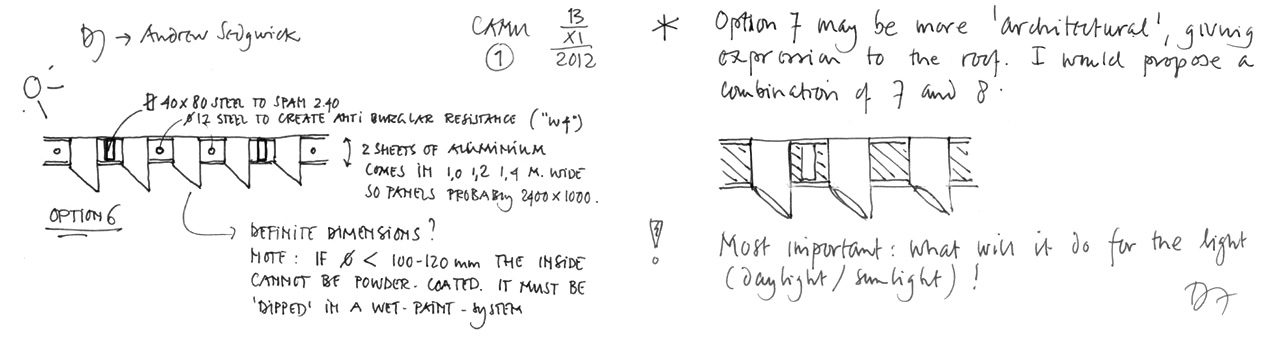 → Andrew Sedgwick
CAMM
1
13
XI
2012
40 x 80 STEEL TO SPAM 2.40
ø12 STEEL TO CREATE ANTI BURGLAR RESISTANCE ("W4")
2 SHEETS OF ALUMINIUM
COMES IN 1,0 1,2 1,4 M. WIDE
SO PANELS PROBABLY 2400 x 1000.
OPTION 6
→ DEFINITE DIMENSIONS?
NOTE: IF ø < 100-120 mm THE INSIDE
CANNOT BE POWDER-COATED. IT MUST BE
'DIPPED' IN A WET-PAINT-SYSTEM
* Option 7 may be more 'architectural', giving
expression to the roof. I would propose a
combination of 7 and 8.
! Most important: what will it do for the light
(daylight/sunlight)!